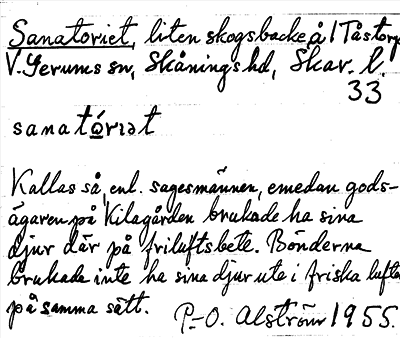 Sanatoriet, liten skogsbacke å 1 Tåstorp
V. Gerums sn, Skånings hd, Skar. l.
33
sanatórɪət
Kallas så, enl. sagesmännen, emedan gods-
ägaren på Kilagården brukade ha sina
djur där på friluftsbete. Bönderna
brukade inte ha sina djur ute i friska luften
på samma sätt.
P.-O. Alström 1955.